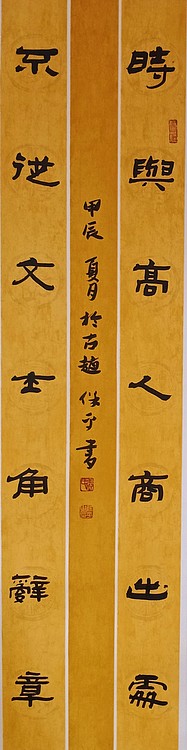 時與高人商出處
不從文士角辭章
甲辰夏月於古趙 平書